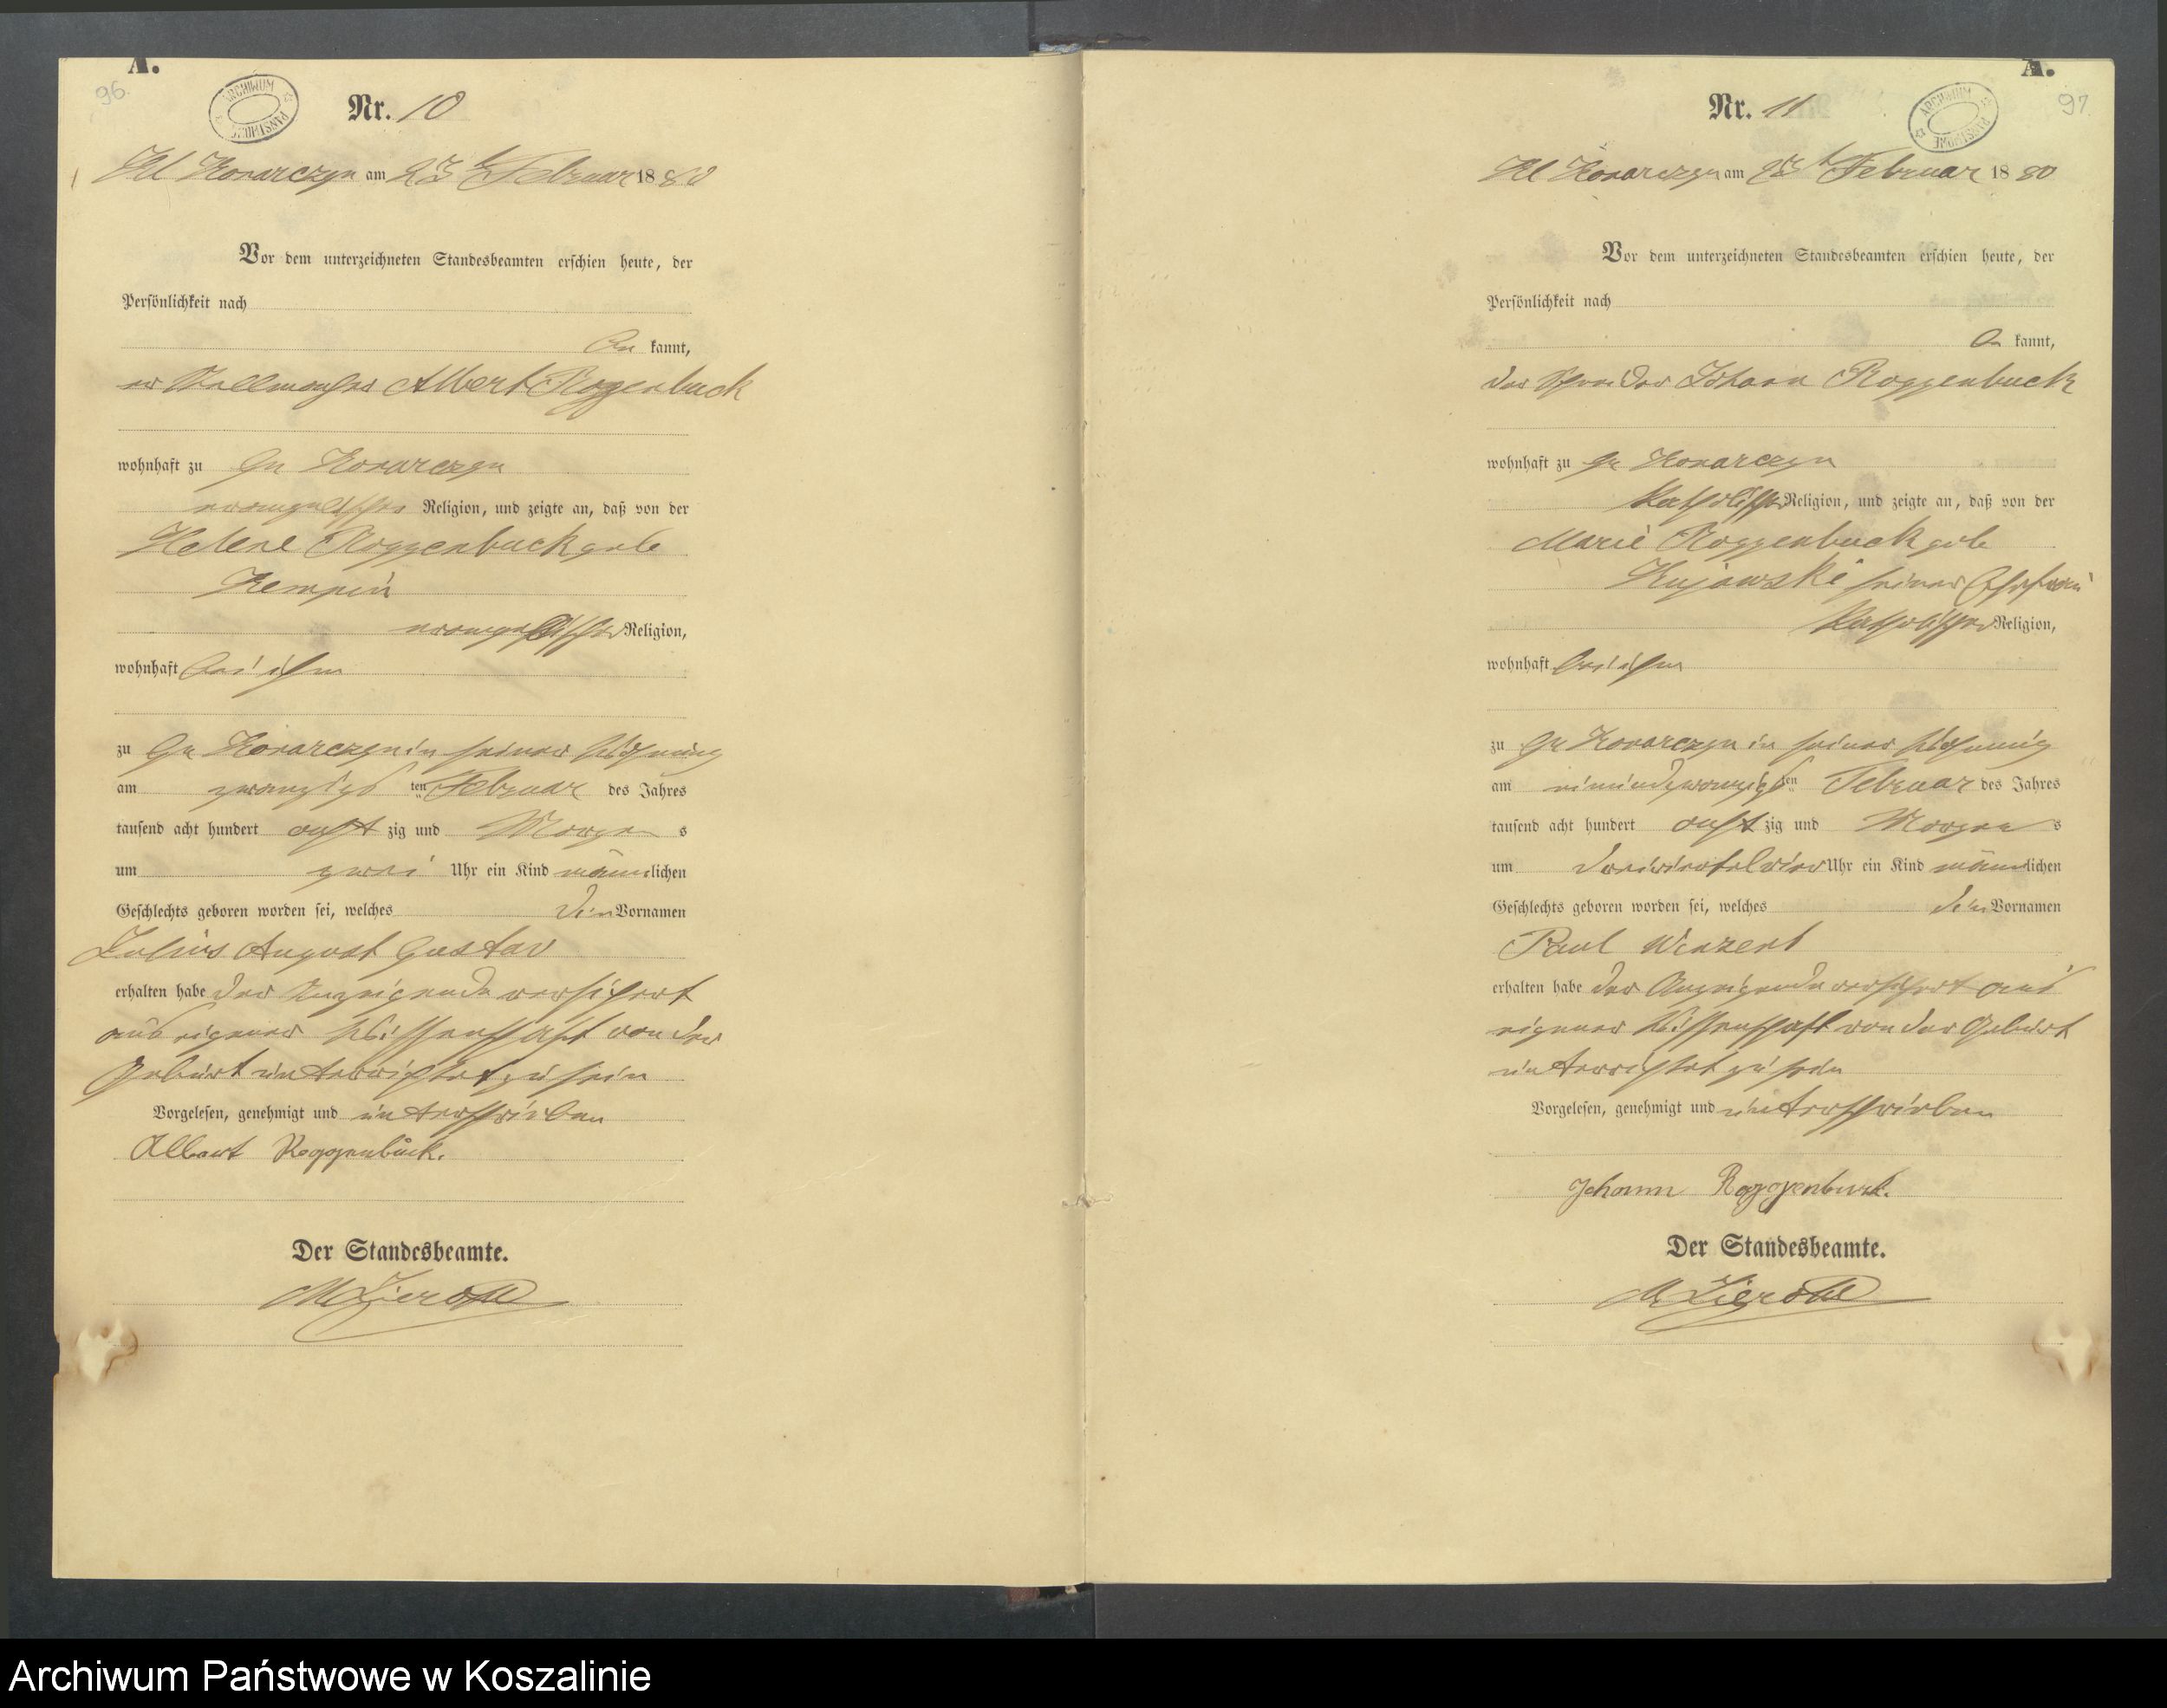 A.
96.
ARCHIWUM PAŃSTWOWE
Nr. 10
Kl Konarczyn am 23t Februar 1880
Vor dem unterzeichneten Standesbeamten erschien heute, der
Persönlichkeit nach
be kannt,
er Stellmacher Albert Roggenbuck
wohnhaft zu Gr Konarczyn
evangelischer Religion, und zeigte an, daß von der
Helene Roggenbuck geb
Kempin
evangelischer Religion,
wohnhaft bei ihm
zu Gr Konarczyn in seiner Wohnung
am zwanzigs ten Februar des Jahres
tausend acht hundert acht zig und Morgen s
um zwei Uhr ein Kind männlichen
Geschlechts geboren worden sei, welches den Vornamen
Julius August Gustav
erhalten habe der Anzeigende versichert
aus eigener Wissenschaft von der
Geburt unterrichtet zu sein
Vorgelesen, genehmigt und unterschrieben
Albert Roggenbuck.
Der Standesbeamte.
A.
97.
ARCHIWUM PAŃSTWOWE
Nr. 11
Kl Konarczyn am Februar 1880
Vor dem unterzeichneten Standesbeamten erschien heute, der
Persönlichkeit nach
be kannt,
der Johann Roggenbuck
wohnhaft zu Gr Konarczyn
katholischer Religion, und zeigte an, daß von der
Marie Roggenbuck geb
Kujawski seiner Ehefrau
katholischer Religion,
wohnhaft bei ihm
zu Gr Konarczyn in seiner Wohnung
am einundzwanzigs ten Februar des Jahres
tausend acht hundert acht zig und Morgen s
um dreiviertel vier Uhr ein Kind männlichen
Geschlechts geboren worden sei, welches den Vornamen
Paul Vinzent
erhalten habe der Anzeigende versichert aus
eigener Wissenschaft von der Geburt
unterrichtet zu sein
Vorgelesen, genehmigt und unterschrieben
Johann Roggenbuck.
Der Standesbeamte.
Archiwum Państwowe w Koszalinie